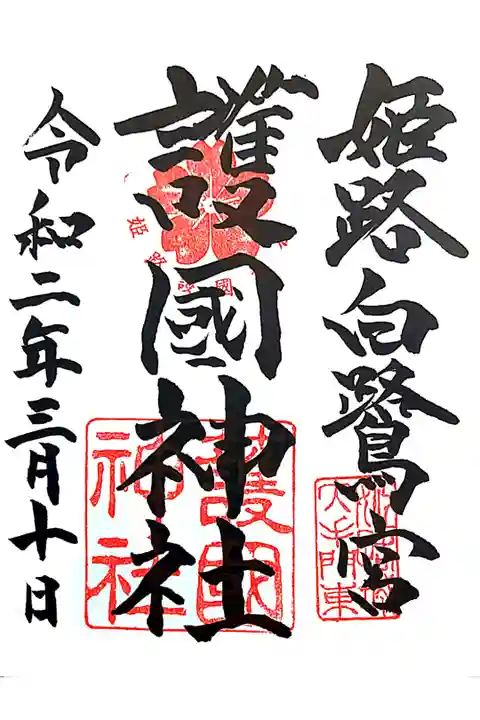 姫路白鷺宮
護國神社
令和二年三月十日
護國
神社